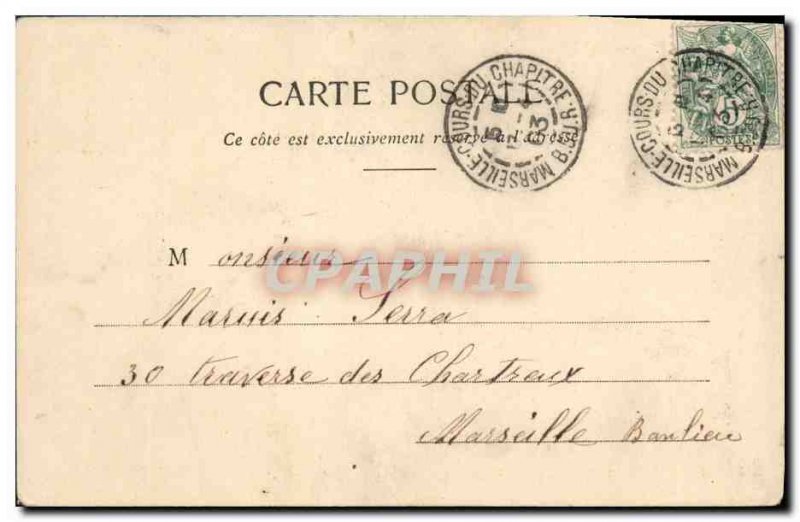 CARTE POSTALE
Ce côté est exclusivement réservé à l'adresse
MARSEILLE-COURS-DU CHAPITRE B.-D.-R.
MARSEILLE-COURS-DU CHAPITRE B.-D.-R.
Monsieur
Marius Serra
30 traverse des Chartreux
Marseille Banlieue
CPAPHIL